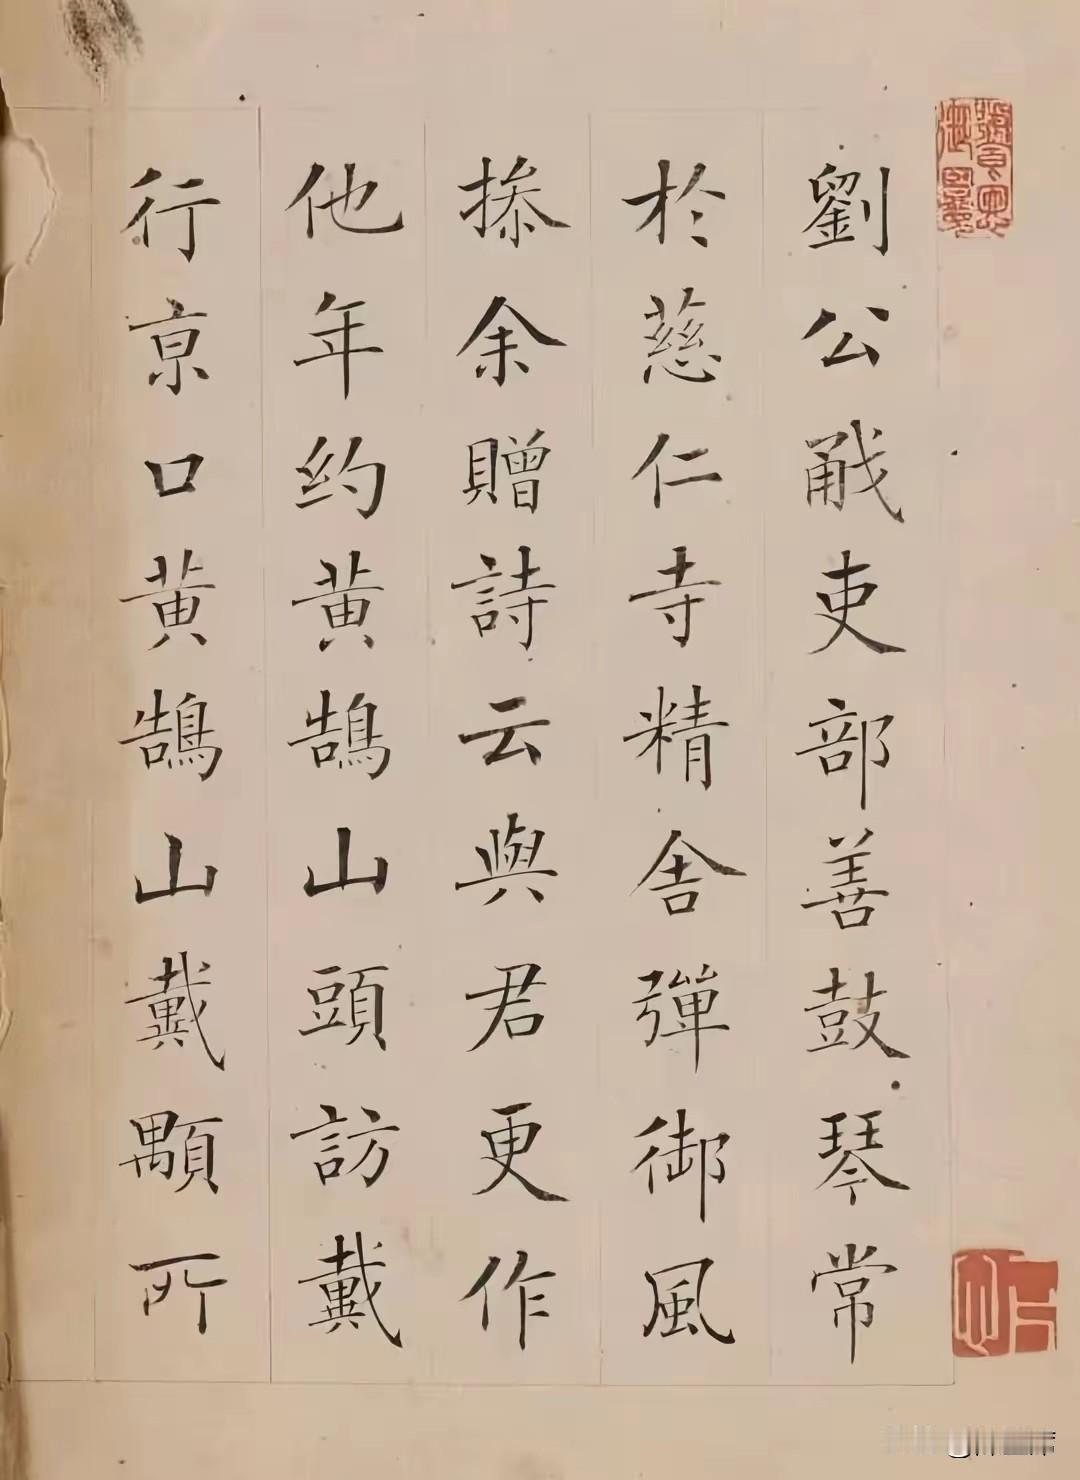 劉公㦷吏部善鼓琴常
於慈仁寺精舍彈御風
操余贈詩云與君更作
他年約黄鵠山頭訪戴
顒行京口黄鵠山戴顒所